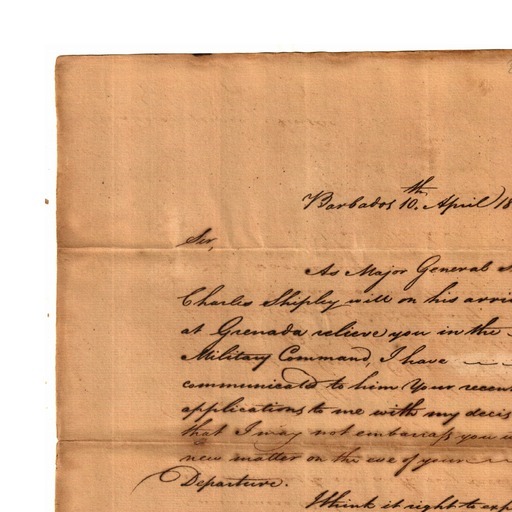 Barbados 10.th April 18
Sir,
As Major General S
Charles Shipley will on his arri
at Grenada relieve you in the
Military Command, I have
communicated to him Your recen
applications to me with my decis
that I may not embarrass you w
new matter on the eve of your
Departure.
I think it right to exp